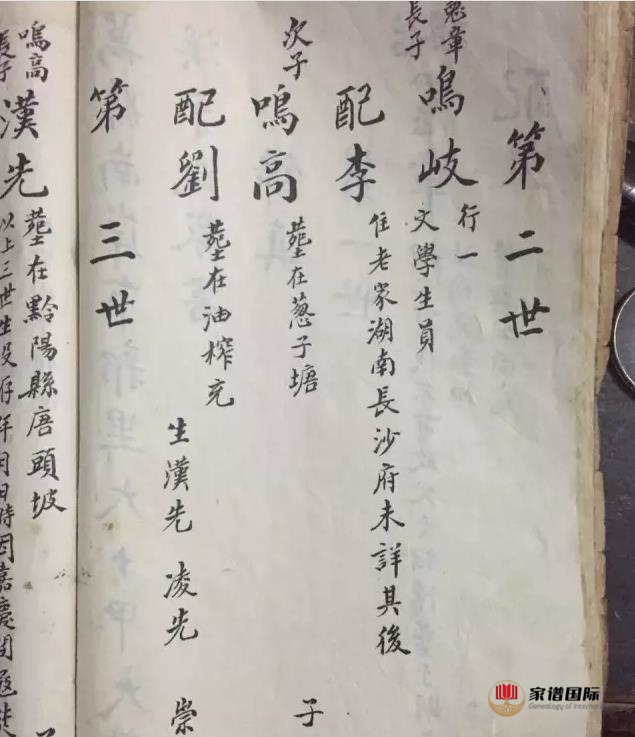 第二世
長子
鳴岐 行一
文學生員
配李 住老家湖南長沙府未詳其後
次子
鳴高 塟在葱子塘 子
配劉 塟在油榨充
生漢先 凌先 崇
第三世
鳴高
長子
漢先 塟在黔陽縣唐頭坡
以上三世生没
年月日時因嘉慶間
家谱国际
Genealogy of Internation